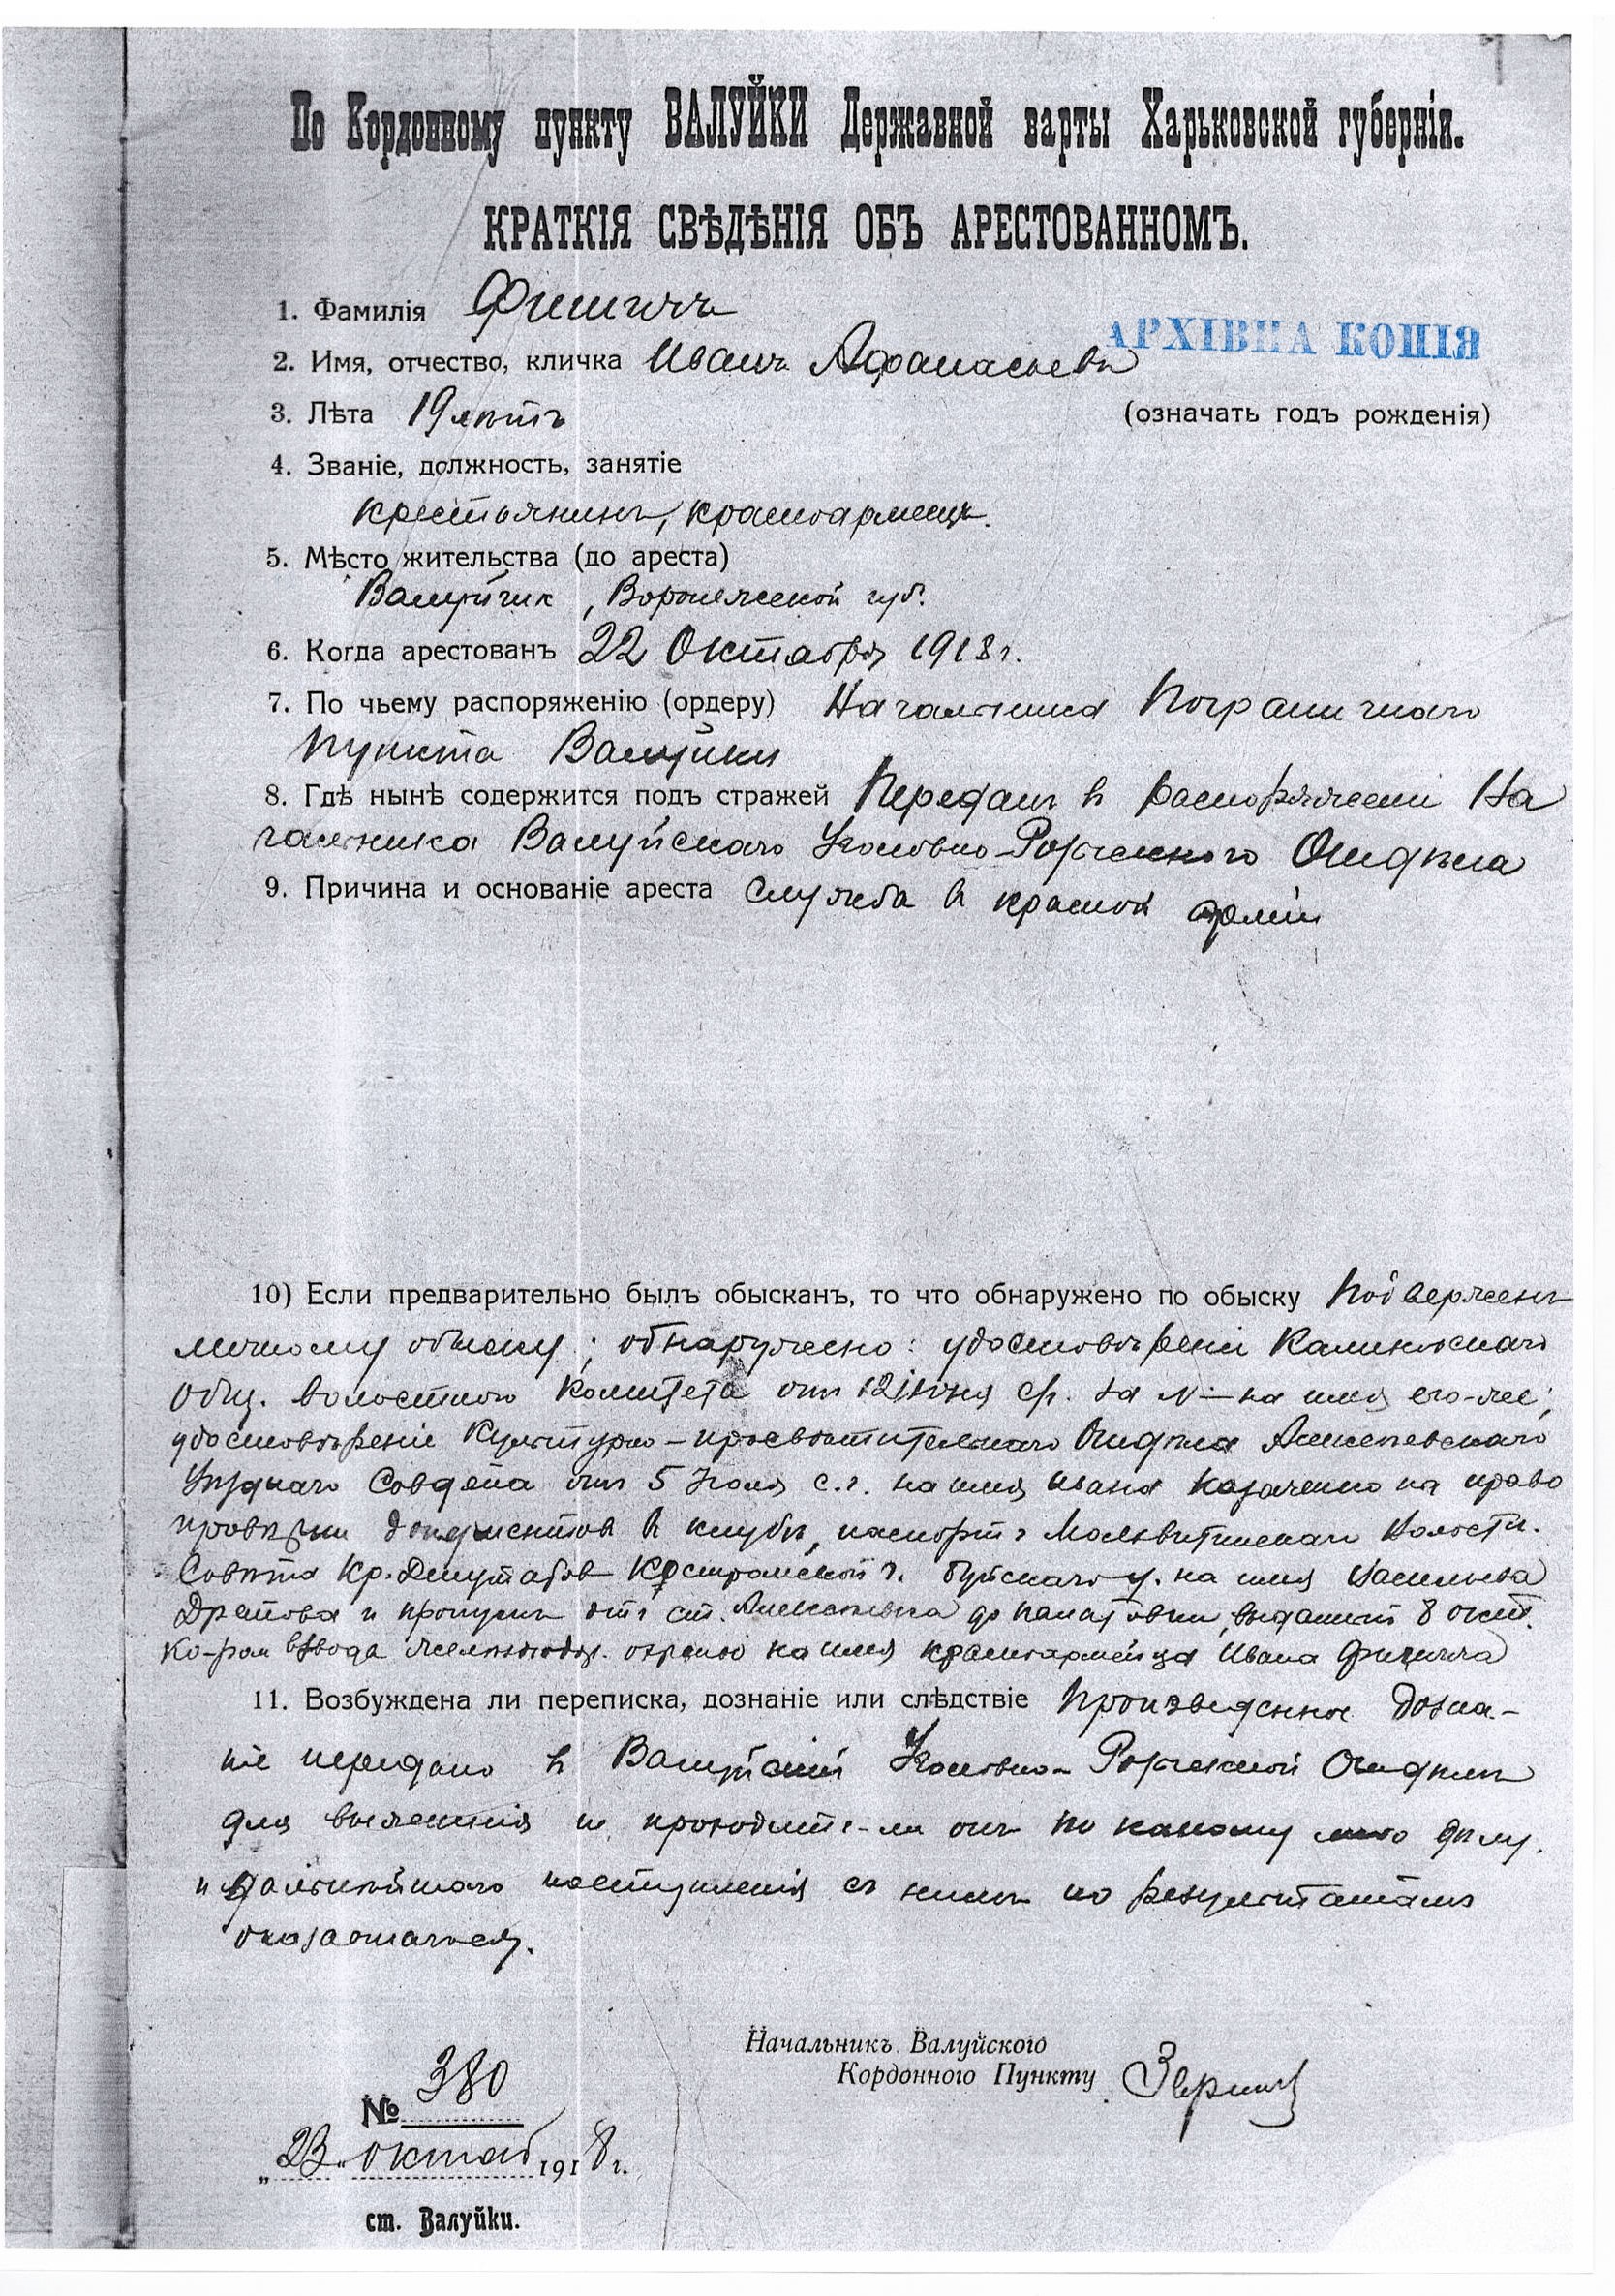 По Кордонному пункту ВАЛУЙКИ Державной варты Харьковской губерніи.
КРАТКІЯ СВѢДѢНІЯ ОБЪ АРЕСТОВАННОМЪ.
1. Фамилія
АРХІВНА КОПІЯ
2. Имя, отчество, кличка Иванъ Афанасьевъ
3. Лѣта 19 лѣтъ (означать годъ рожденія)
4. Званіе, должность, занятіе
крестьянинъ, красноармеец.
5. Мѣсто жительства (до ареста)
Воронежской губ.
6. Когда арестованъ 22 Октября 1918 г.
7. По чьему распоряженію (ордеру) Начальника Пограничнаго
пункта Валуйки
8. Гдѣ нынѣ содержится подъ стражей Передан в распоряжении На
чальника Валуйскаго Уголовно-Розыскного Отдѣла
9. Причина и основаніе ареста служба в красной арміи
10) Если предварительно былъ обысканъ, то что обнаружено по обыску Подвержен
личному обыску; обнаружено: удостовѣреніе
Общ. волостного Комитета от 12 июня с/г. за № — на имя его-же;
удостовѣреніе Культурно-просвѣтительнаго Отдѣла Алексѣевскаго
Уѣзднаго Совдепа от 5 Июля с.г. на имя Ивана Казаченко на право
провѣрки документов в клубѣ, паспорт Молвитинскаго Волостн.
Совѣта Кр. Депутатов Костромской г. Буйскаго у. на имя Васильева
и пропуск от ст. Алексѣевка до выданный 8 окт.
Ко-ром взвода желѣзнодор. охраны на имя красноармейца Ивана
11. Возбуждена ли переписка, дознаніе или слѣдствіе Произведенное дозна-
ніе передано в Валуйский Уголовно-Розыскной Отдѣлъ
для выясненія не проходитъ-ли онъ по какому либо дѣлу.
и дальнѣйшаго поступленія с нимъ по результатам
оказавшагося.
Начальникъ Валуйского
Кордонного Пункту
№ 380
„23" октяб 1918 г.
ст. Валуйки.